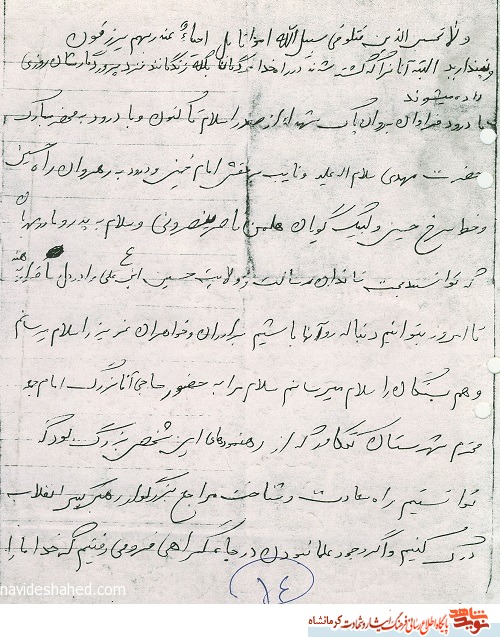 ولا تحسبن الذین قتلو فی سبیل الله امواتا بل احیاءٌ عند ربهم یرزقون
نپندارید البته آنانرا که کشته شدند در راه خدا مردگانند بلکه زندگانند نزد پروردگارشان روزی
داده میشوند
با درود فراوان بروان پاک شهدا از صدر اسلام تا کنون و با درود به محضر مبارک
حضرت مهدی سلام اله علیه و نایب بر حقش امام خمینی و درود به رهروان راه حسین
و خط سرخ حسینی و لبیک گویان هلمن ناصر ینصرونی و سلام به پدر و مادرم
که توانستند محبت خاندان رسالت و ولایت حسین ابن علی را در دل ما قرار دهند
تا امروز بتوانیم دنباله رو آنها باشیم برادران و خواهران عزیز را سلام میرسانم
و هم بستگان را سلام میرسانم سلام مرا به حضور حاجی آقا بزرگ امام جمعه
محترم شهرستان کنگاور که از رهنمودهای این شخص بزرگ بود که
توانستیم راه سعادت و شناخت مراجع بزرگوار رهبر کبیر انقلاب
درک کنیم و اگر وجود علما نبودن در چاه گمراهی فرو می رفتیم که خدا ما را
١٤
navideshahed.com
نوید شاهد
پایگاه اطلاع رسانی فرهنگ ایثار و شهادت کرمانشاه